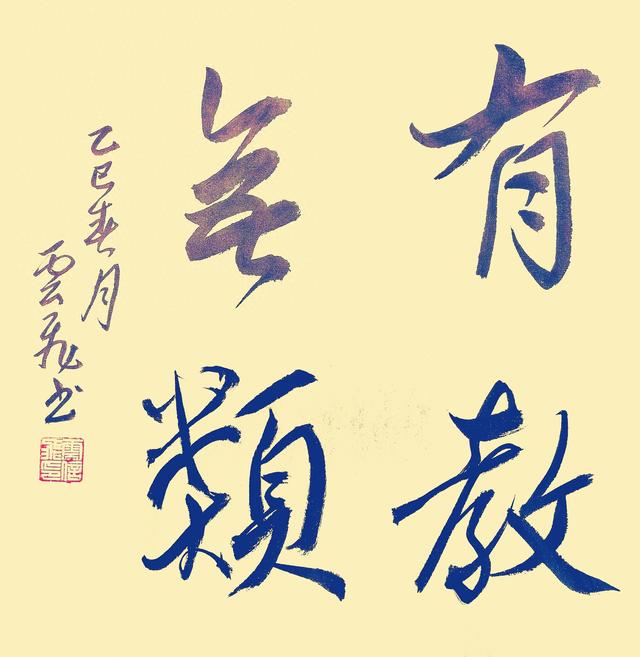 有教
無類
乙巳春月
雲飛书